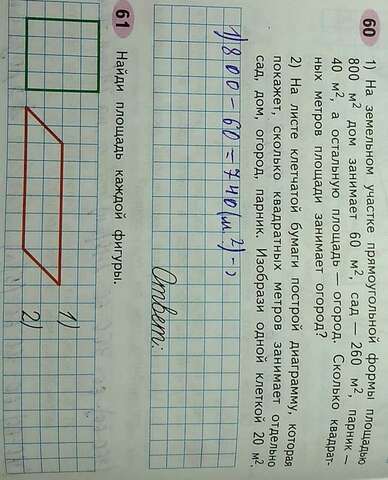 60
1) На земельном участке прямоугольной формы площадью
800 м² дом занимает 60 м², сад — 260 м², парник —
40 м², а остальную площадь — огород. Сколько квадрат-
ных метров площади занимает огород?
2) На листе клетчатой бумаги построй диаграмму, которая
покажет, сколько квадратных метров занимает отдельно
сад, дом, огород, парник. Изобрази одной клеткой 20 м².
1) 800 - 60 = 740 (м²) -
Ответ:
61
Найди площадь каждой фигуры.
1)
2)